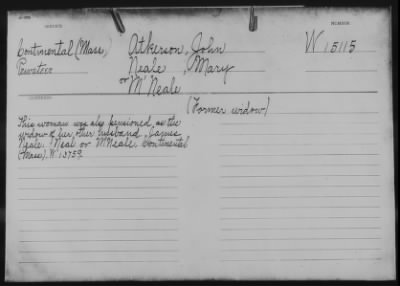 SERVICE
NUMBER
Continental (Mass.)
Atkerson, John
W 15115
Privateer
Neale, Mary
or
McNeale
(Former widow)
This woman was also pensioned, as the
widow of her other husband, James
Neale, Neal or McNeale, Continental
(Mass), W 13759.